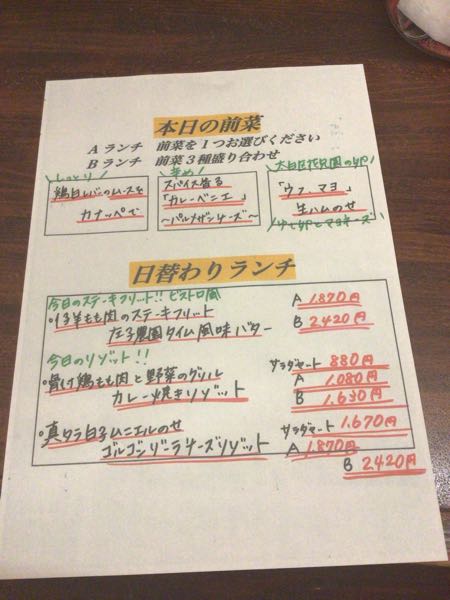 本日の前菜
Aランチ 前菜を1つお選びください
Bランチ 前菜3種盛り合わせ
\しっとり/
鶏白レバーのムースを
カナッペで
スパイス香る
「カレーベニエ」
～パルメザンチーズ～
「ウフ・マヨ」
生ハムのせ
ゆで卵とマヨネーズ
日替わりランチ
今日のステーキフリット!! ビストロ風
・仔羊もも肉のステーキフリット
A 1.870円
農園タイム風味バター
B 2.420円
今日のリゾット!!
サラダセット 880円
・骨付鶏もも肉と野菜のグリル
A 1.080円
カレー焼きリゾット
B 1.630円
・真タラ白子ムニエルのせ
サラダセット 1.670円
ゴルゴンゾーラチーズリゾット
A 1.870円
B 2.420円